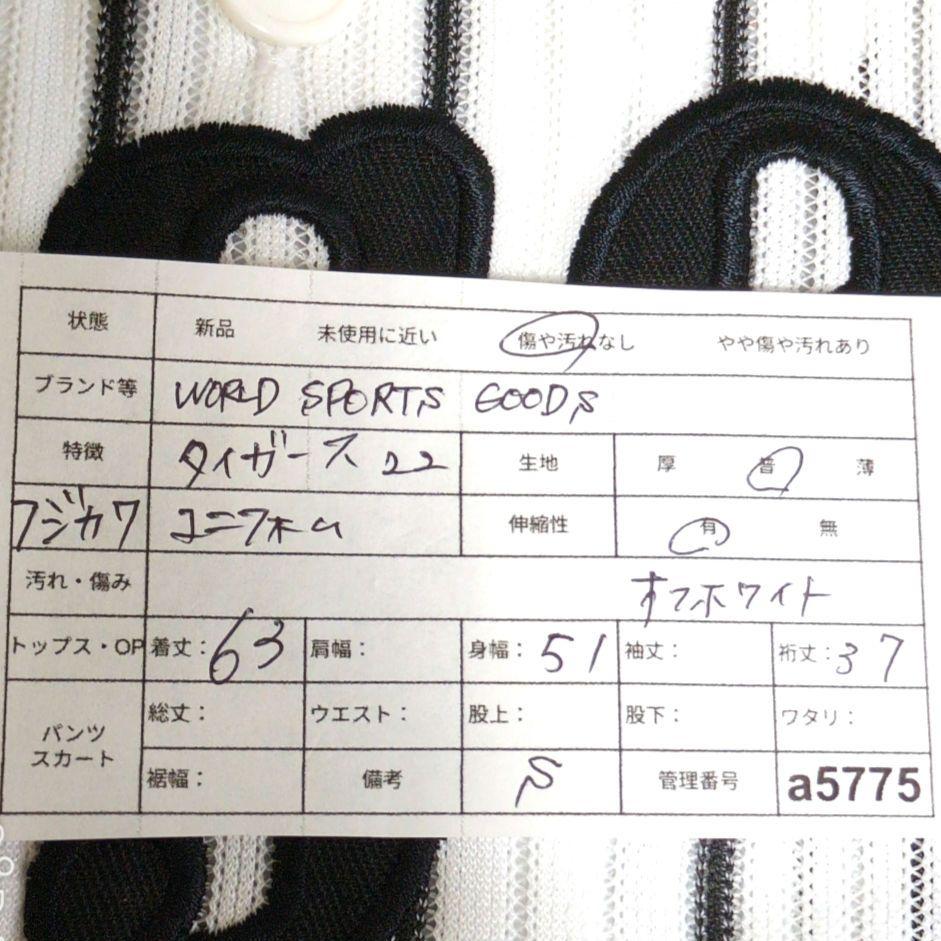 状態 新品 未使用に近い 傷や汚れなし やや傷や汚れあり
ブランド等 WORLD SPORTS GOODS
特徴 タイガース 22 生地 厚 普 薄
フジカワ ユニフォーム 伸縮性 有 無
汚れ・傷み オフホワイト
トップス・OP 着丈: 63 肩幅: 身幅: 51 袖丈: 裄丈: 37
パンツ スカート 総丈: ウエスト: 股上: 股下: ワタリ:
裾幅: 備考 S 管理番号 a5775